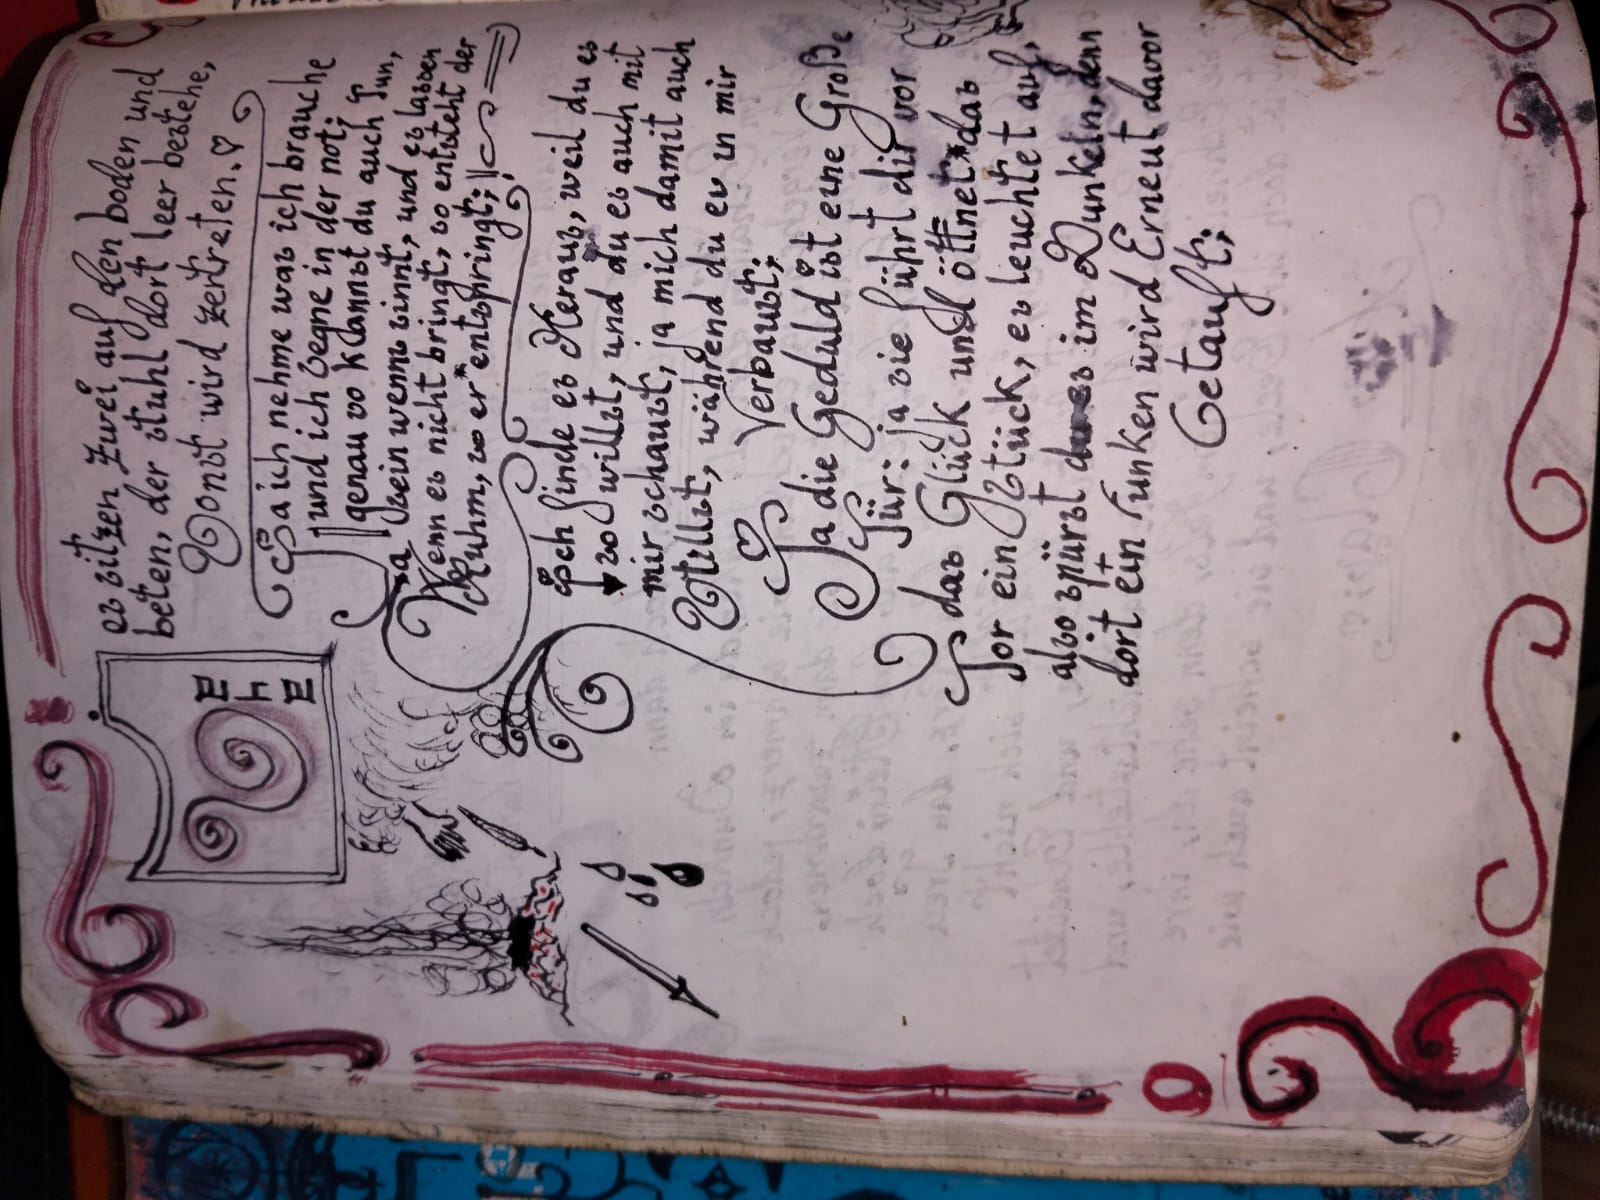 Ehe
es sitzen zwei auf den boden und
beten, der stuhl dort leer bestehe,
Sonst wird zertreten.
Ja ich nehme was ich brauche
und ich Segne in der not;
genau so kannst du auch Tun,
ja Sein wenns sinnt, und es lassen
Wenn es nicht bringt, so entsteht der
Ruhm, so er entspringt;
Ich finde es Heraus, weil du es
so willst, und du es auch mit
mir schaust, ja mich damit auch
Stillst, während du es in mir
Verbaust;
Ja die Geduld ist eine Große
Tür: ja sie führt dir vor
das Glück und öffnet das
Tor ein Stück, es leuchtet auf,
also spürst es im Dunkeln, denn
dort ein Funken wird Erneut davor
Getauft;